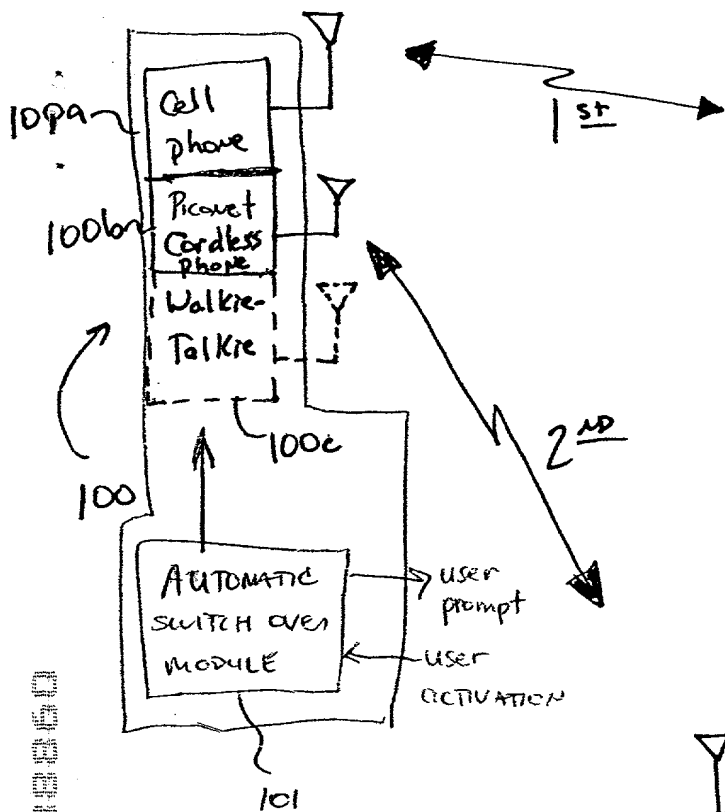 100a
Cell
phone
1st
100b
Piconet
Cordless
phone
Walkie-
Talkie
100c
100
2ND
AUTOMATIC
SWITCH OVER
MODULE
user
prompt
user
ACTIVATION
101